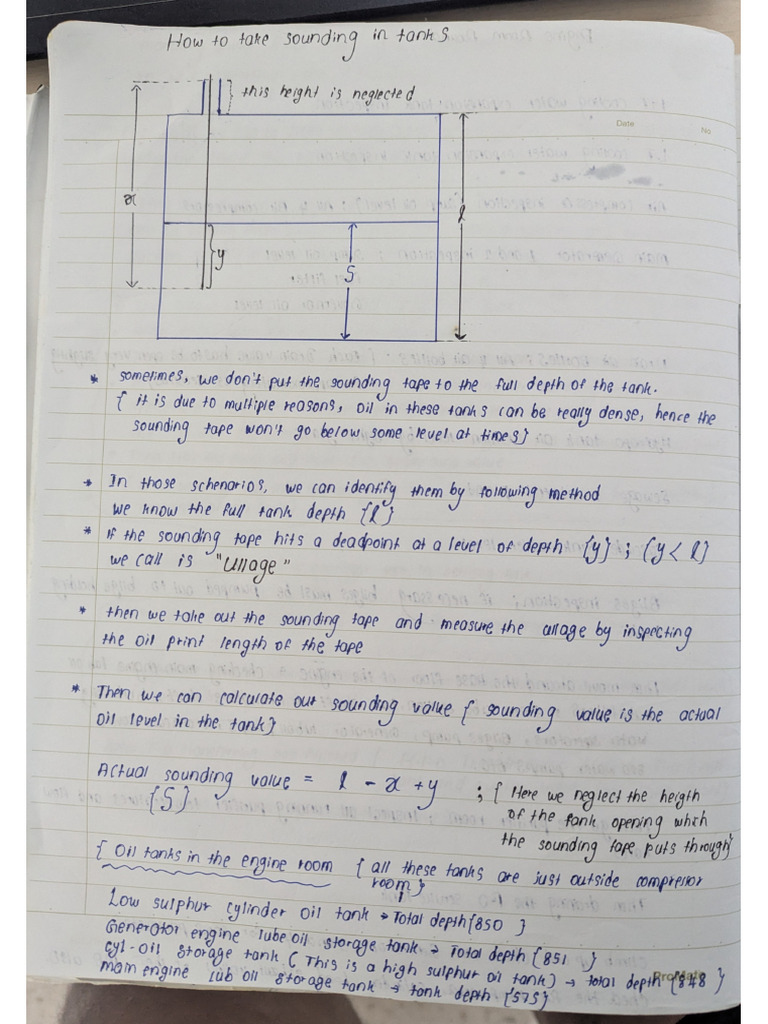 How to take sounding in tanks
this height is neglected
Date
No.
x
l
y
S
* sometimes, we don't put the sounding tape to the full depth of the tank.
{ it is due to multiple reasons, oil in these tanks can be really dense, hence the
sounding tape won't go below some level at times}
* In those schenarios, we can identify them by following method
we know the full tank depth {l}
* If the sounding tape hits a deadpoint at a level of depth {y} ; {y < l}
we call is "Ullage"
* then we take out the sounding tape and measure the ullage by inspecting
the oil print length of the tape
* Then we can calculate our sounding value { sounding value is the actual
oil level in the tank}
Actual sounding value = l - x + y ; { Here we neglect the heigth
{S} of the tank opening which
the sounding tape puts through}
{ Oil tanks in the engine room { all these tanks are just outside compressor
room }
Low sulphur cylinder oil tank → Total depth {850 }
Generator/engine lube oil storage tank → Total depth {851 }
cyl-oil storage tank. ( This is a high sulphur oil tank) → total depth {848 }
main engine lub oil storage tank → tank depth {575}
ProMate